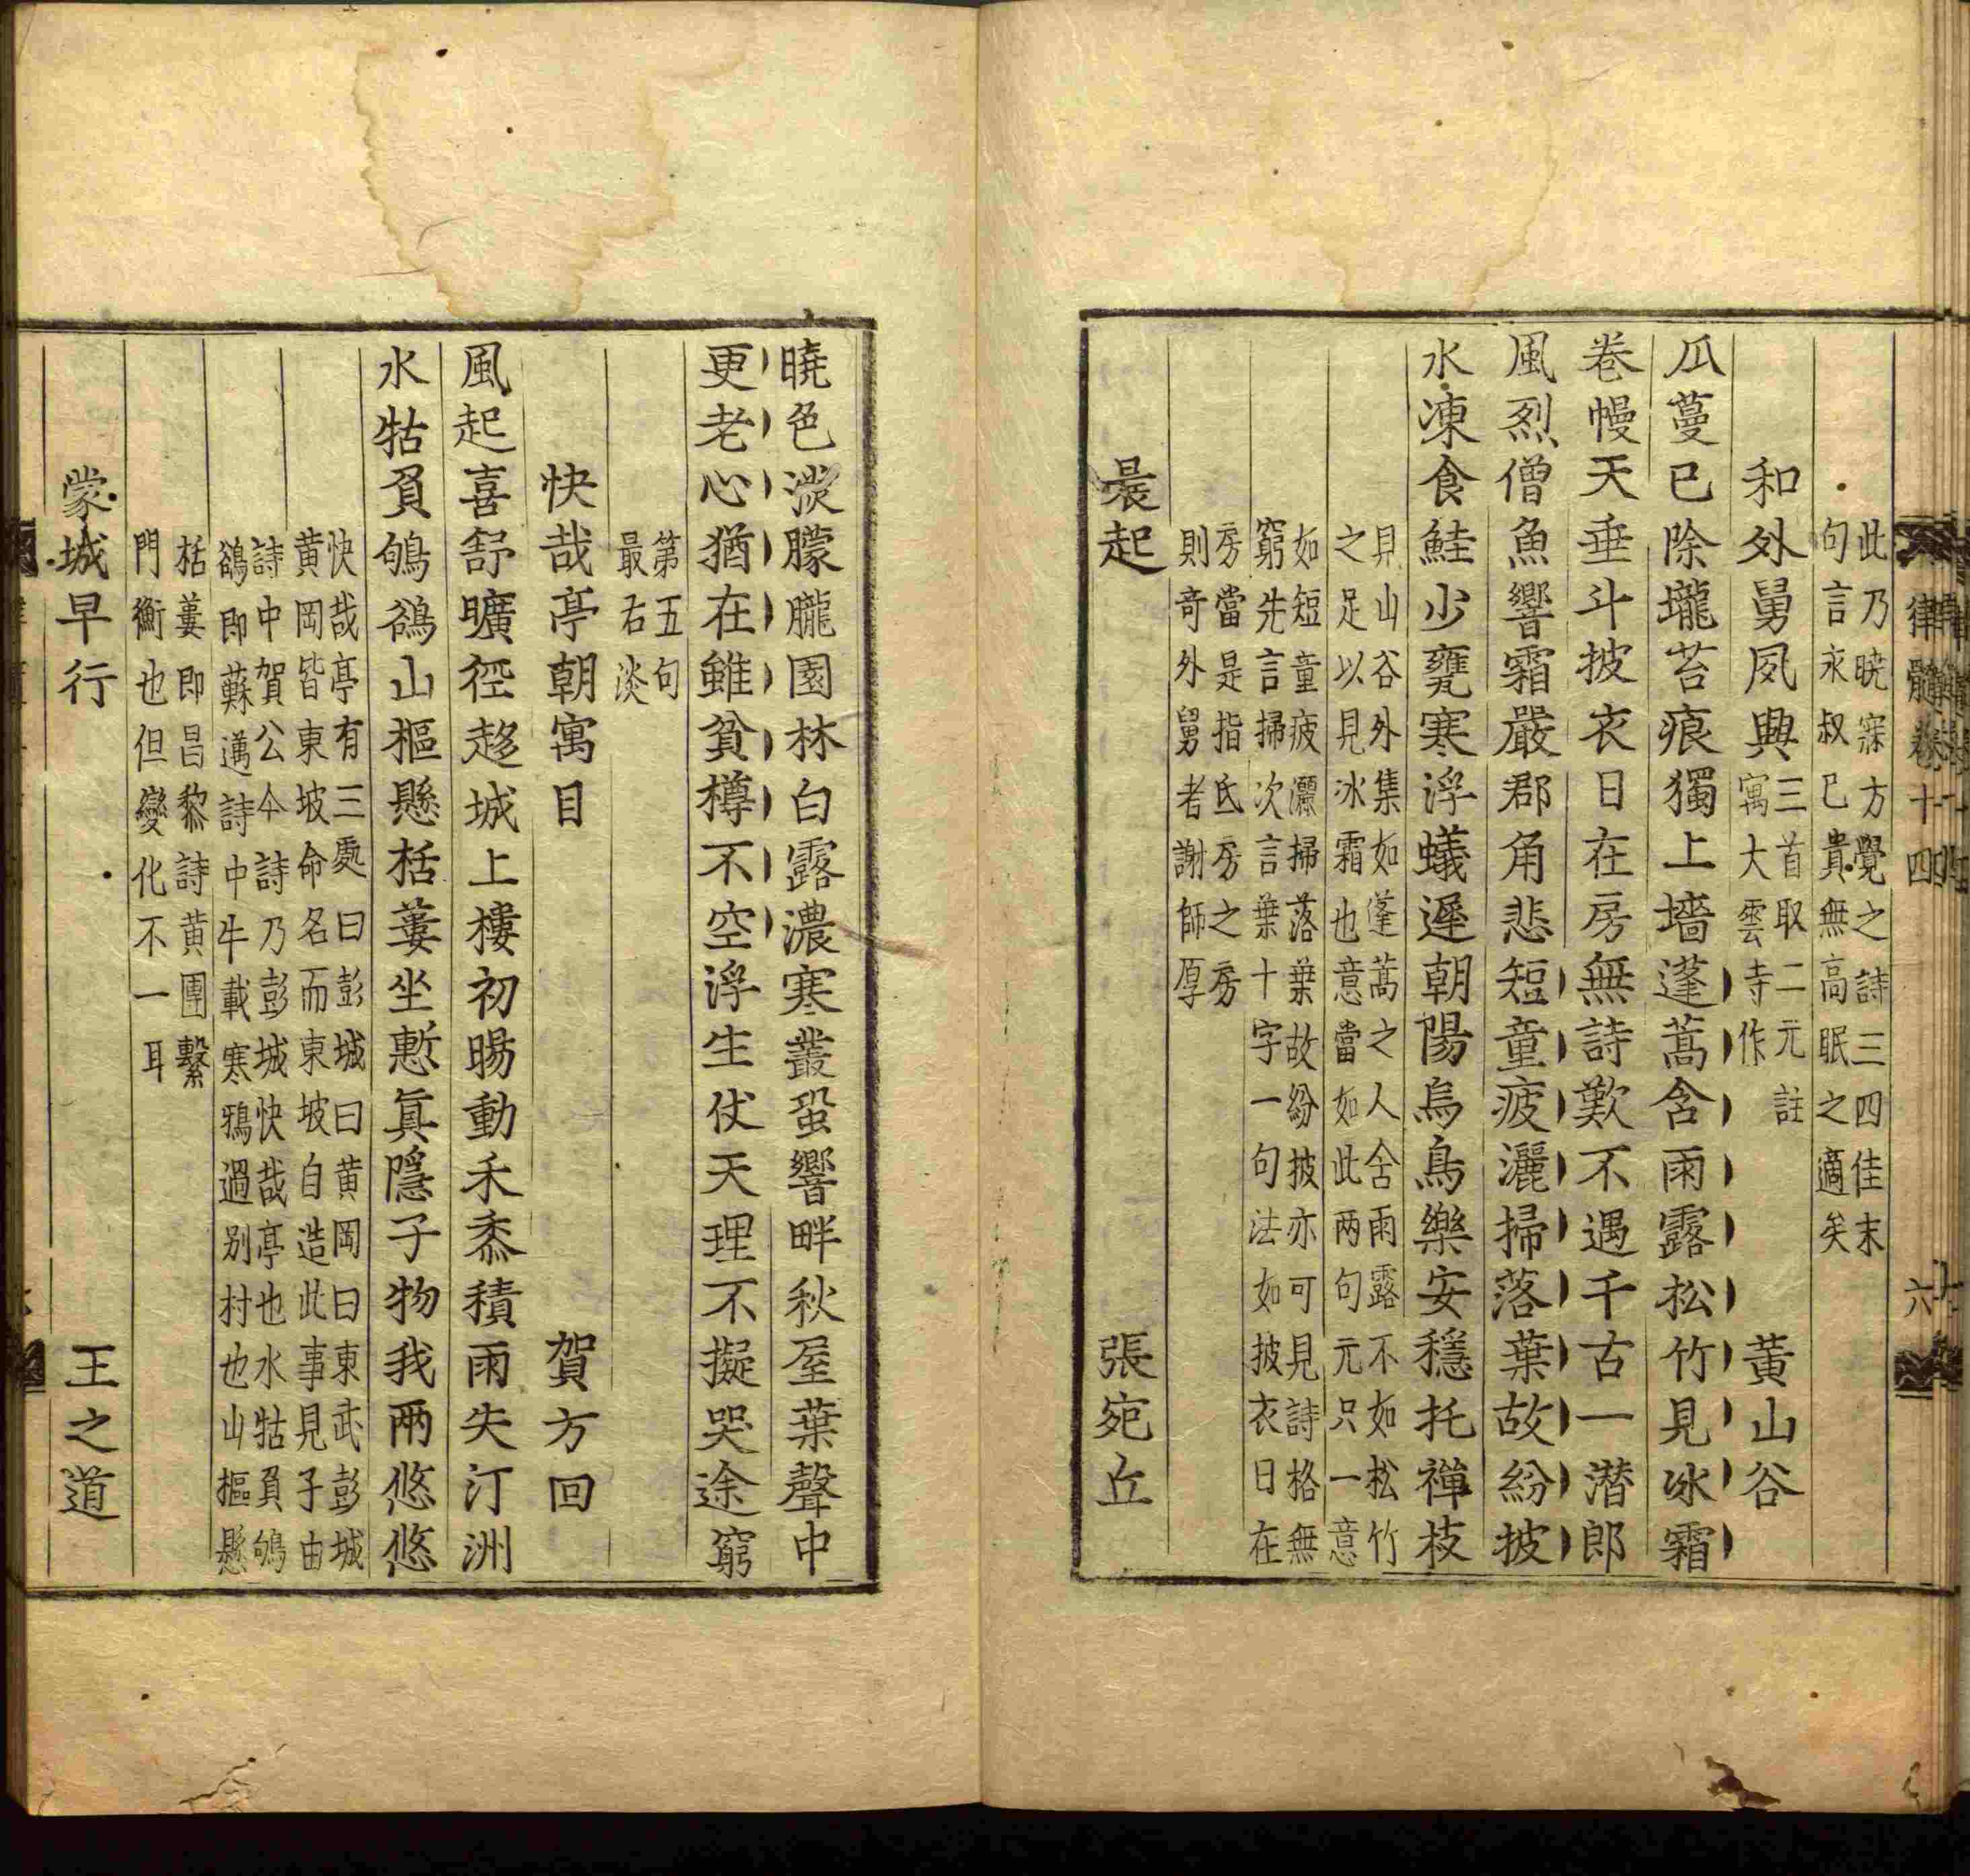 律髓卷十四
六
此乃曉寐方覺之詩三四佳末
句言永叔已貴無高眠之適矣
和外舅夙興三首取二元註
寓大雲寺作
黄山谷
瓜蔓已除壠苔痕獨上墻蓬蒿含雨露松竹見冰霜
卷幔天垂斗披衣日在房無詩歎不遇千古一潜郎
風烈僧魚響霜嚴郡角悲短童疲灑掃落葉故紛披
水凍食鮭少甕寒浮蟻遲朝陽烏鳥樂安穩托禪枝
見山谷外集如蓬蒿之人舍雨露不如松竹
之足以見冰霜也意當如此两句元只一意
如短童疲灑掃落葉故紛披亦可見詩格無
窮先言掃次言葉十字一句法如披衣日在
房當是指氐房之房
則奇外舅者謝師厚
晨起
張宛丘
曉色淡朦朧園林白露濃寒叢蛩響畔秋屋葉聲中
更老心猶在雖貧樽不空浮生仗天理不擬哭途窮
第五句
最右淡
快哉亭朝寓目
賀方回
風起喜舒曠徑趍城上樓初暘動禾黍積雨失汀洲
水牯負鴝鵒山樞懸栝蔞坐慙真隱子物我两悠悠
快哉亭有三處曰彭城曰黄岡曰東武彭城
黄岡皆東坡命名而東坡自造此事見子由
詩中賀公今詩乃彭城快哉亭也水牯負鴝
鵒即蘇邁詩中牛載寒鴉過别村也山樞懸
栝蔞即昌黎詩黄團繫
門衡也但變化不一耳
蒙城早行
王之道